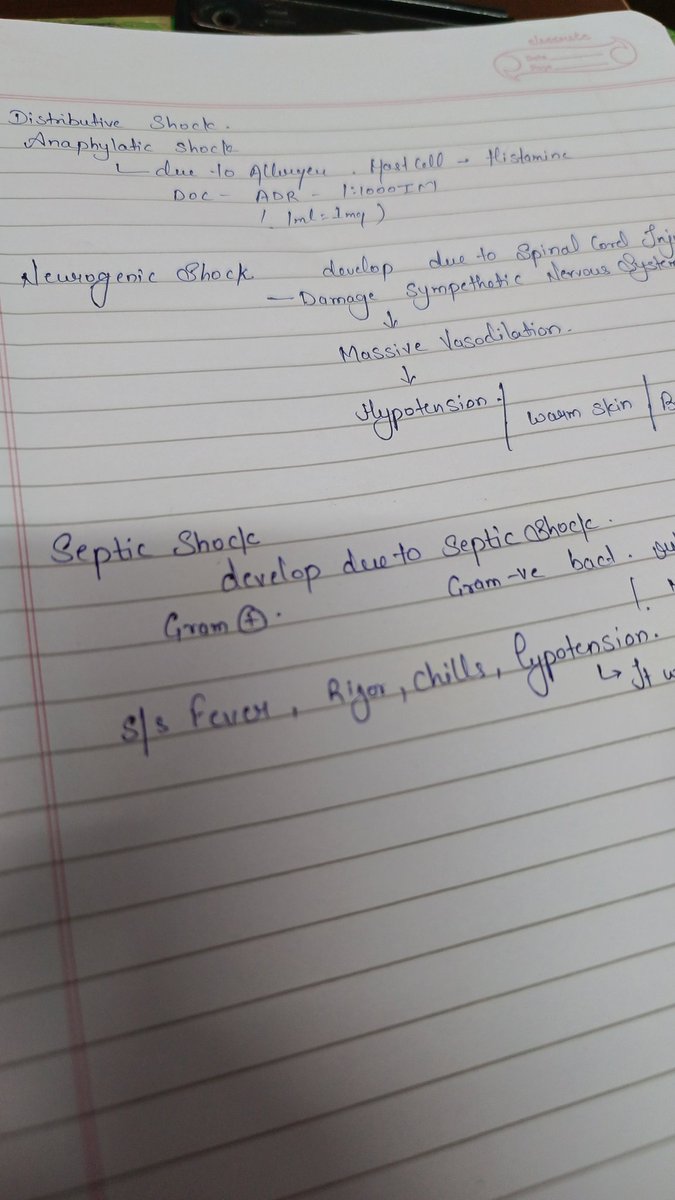 classmate
Date
Page
Distributive Shock.
Anaphylatic Shock
due to Allergen. Mast Cell → Histamine
DOC - ADR - 1:1000 IM
( 1ml = 1mg )
Neurogenic Shock develop due to Spinal Cord Inj
- Damage Sympethetic Nervous System
↓
Massive Vasodilation.
↓
Hypotension. | warm skin | B
Septic Shock
develop due to Septic Shock.
Gram ⊕. Gram -ve bact.
S/s Fever, Rigor, Chills, Hypotension.
↳ It w